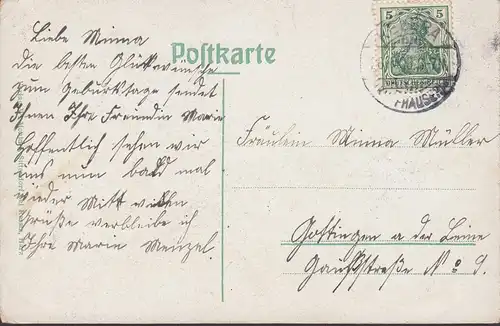 Postkarte
Liebe Minna
die besten Glückwünsche
zum Geburtstage sendet
Ihnen Ihre Freundin Marie
Hoffentlich sehen wir
uns nun bald mal
wieder Mitt vielen
Grüße verbleibe ich
Ihre Marie Menzel.
5 5
HAUSEN
Fräulein Minna Müller
Gottingen a der Leine
Gaußstraße No 9.